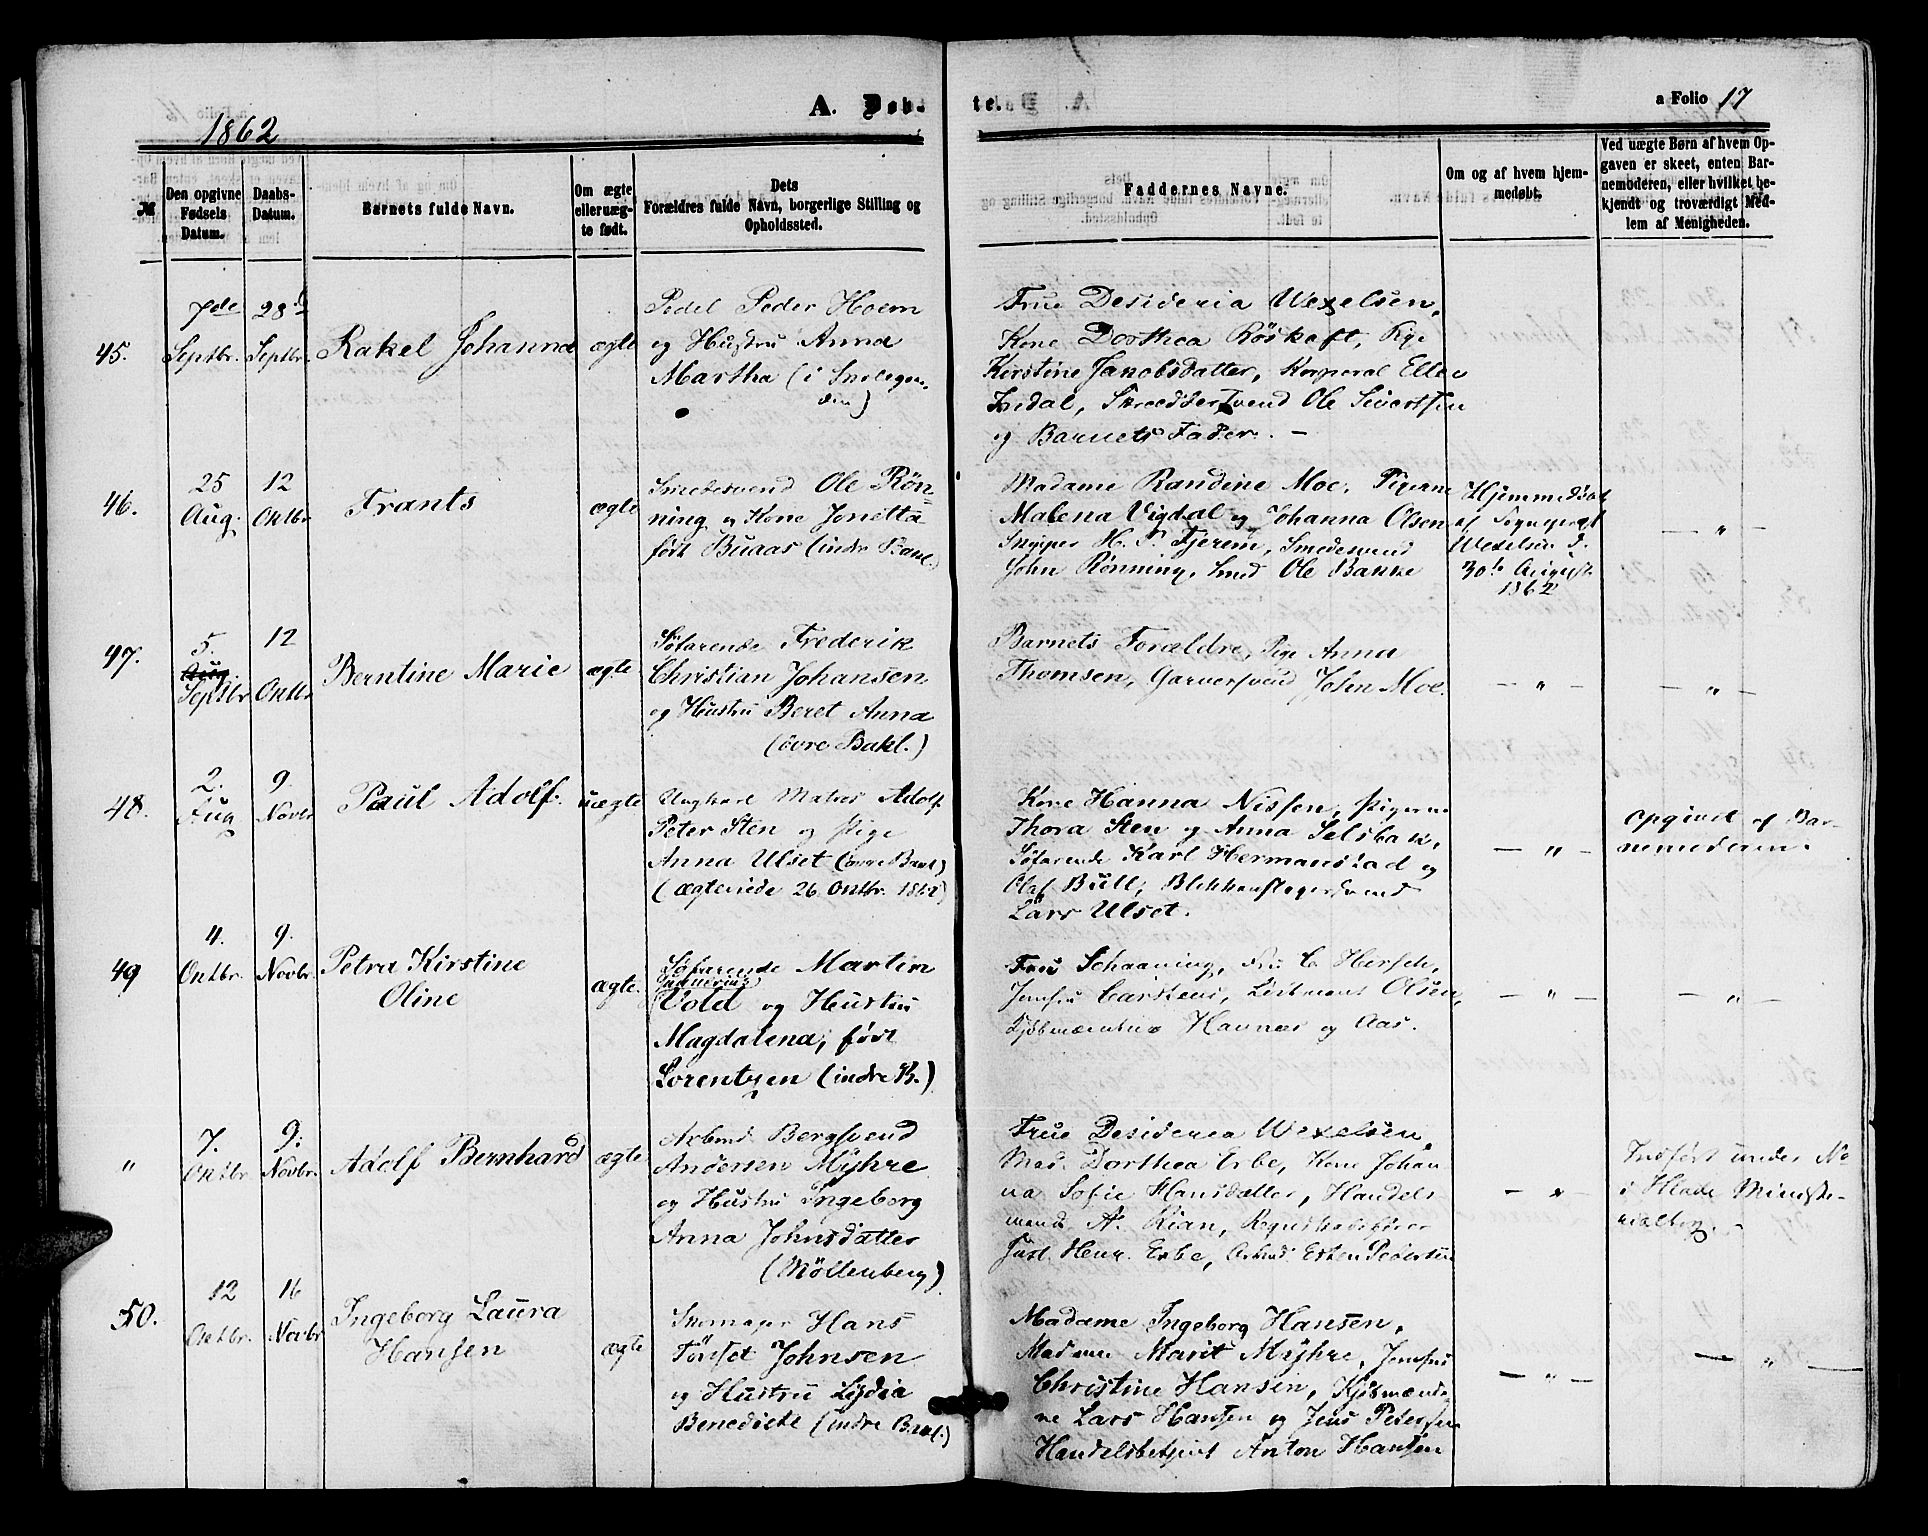 1862
A. Døbte.
a Folio 17
№
Den opgivne Fødsels Datum.
Daabs-Datum.
Barnets fulde Navn.
Om ægte eller uægte født.
Dets Forældres fulde Navn, borgerlige Stilling og Opholdssted.
Faddernes Navne.
Om og af hvem hjemmedøbt.
Ved uægte Børn af hvem Opgaven er skeet, enten Barnemoderen, eller hvilket bekjendt og troværdigt Medlem af Menigheden.
45.
7de Septbr.
28de Septbr.
Rakel Johanna
ægte
Pedel Peder Hoem
og Hustru Anna
Martha (i
Frue Desideria Wexelsen,
Kone Dorthea Röskaft, Pige
Kirstine Jakobsdatter, Korporal Ellev
Indal, Skrædersvend Ole Sivertsen
og Barnets Fader. –
46.
25 Aug.
12 Oktbr.
Frants
ægte
Smedesvend Ole Rön-
ning og Kone Jonetta
født Buaas (indre Bakl.)
Madame Randine Moe, Pigerne
Malena Vigdal og Johanna Olsen
Skipper H. P. Fjerem, Smedesvend
John Rönning, Smed Ole Bakke
Hjemmedøbt
af Sognepræst
Wexelsen d.
30te August
1862
— " —
47.
5. Aug. Septbr.
12 Oktbr.
Berntine Marie
ægte
Söfarende Frederik
Christian Johansen
og Hustru Beret Anna
(övre Bakl.)
Barnets Forældre, Pige Anna
Thomsen, Garversvend John Moe.
— " —
— " —
48.
2. Aug
9. Novbr
Paul Adolf.
uægte
Ungkarl Matros Adolf
Peter Sten og Pige
Anna Ulset (övre Bakl)
(ægteviede 26 Oktbr. 1862)
Kone Hanna Nissen, Pigerne
Thora Sten og Anna Selsbak,
Söfarende Karl Hermanstad og
Olaf Bull, Blikkenslagersvend
Lars Ulset.
— " —
Opgivet af Bar-
nemoderen.
49
4. Oktbr.
9. Novbr.
Petra Kirstine
Oline
ægte.
Söfarende Martin
Vold og Hustru
Magdalena, född
Lorentzen (indre B.)
Fru Schaaning, Fru C Hersch,
Jomfru Carstens, Löitnant Olsen,
Kjöbmændene Havnæs og Aas.
— " —
— " —
"
7. Oktbr
9. Novbr.
Adolf Bernhard
ægte
Arbmd. Bergsvend
Andersen Myhre
og Hustru Ingeborg
Anna Johnsdatter
(Möllenberg)
Frue Desideria Wexelsen,
Mad. Dorthea Erbe, Kone Johan-
na Sofie Hansdatter, Handels-
mand A. Kian, Regnskabsfører
Just. Henr. Erbe, Arbmd Esten Pedersen
— " —
Indført under No
i Hlade Ministe-
rialbog. –
50.
12 Oktbr.
16 Novbr
Ingeborg Laura
Hansen
ægte
Skomager Hans
Tönset Johnsen
og Hustru Lydia
Benedicte (indre Bakl.)
Madame Ingeborg Hansen,
Madame Marit Myhre, Jomfru
Christine Hansen, Kjöbmænde-
ne Lars Hansen og Jens Petersen
Handelsbetjent Anton Hansen
— " —
— " —